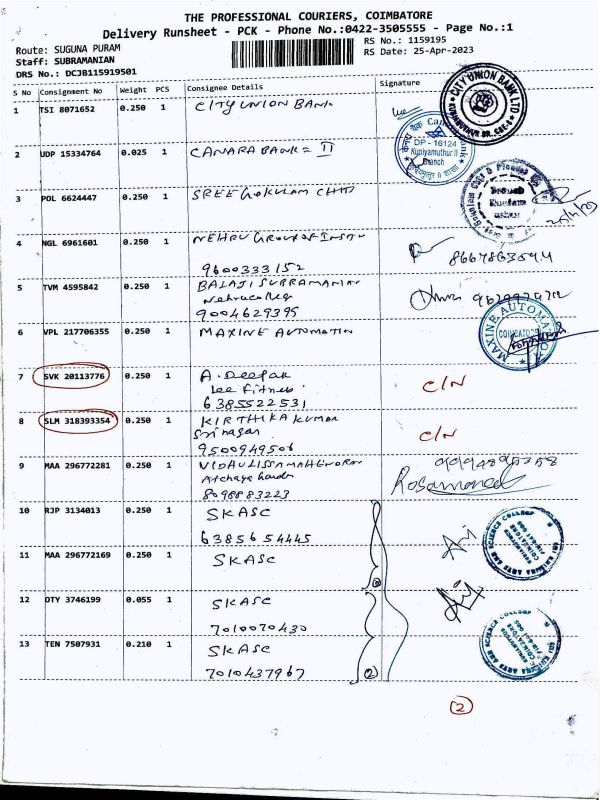 THE PROFESSIONAL COURIERS, COIMBATORE
Delivery Runsheet - PCK - Phone No.:0422-3505555 - Page No.:1
Route: SUGUNA PURAM
RS No.: 1159195
Staff: SUBRAMANIAN
RS Date: 25-Apr-2023
DRS No.: DCJB115919501
S No Consignment No Weight PCS Consignee Details Signature
1 TSI 8071652 0.250 1 CITY UNION BANK
CITY UNION BANK LTD
2 UDP 15334764 0.025 1 CANARA BANK = II
DP - 16124
Kuniyamuthur II
Branch
3 POL 6624447 0.250 1 SREE GOKULAM CHITS
4 NGL 6961601 0.250 1 NEHRU GROUP OF INSTU
9600333152
5 TVM 4595842 0.250 1 BALAJI SUBRAMANIAN
Nehru college
9004629395
6 VPL 217706355 0.250 1 MAXINE AUTOMATION
MAXINE AUTOMATION
COIMBATORE
7 SVK 20113776 0.250 1 A. Deepak
Lee Fitness
6385522531
C/N
8 SLM 318393354 0.250 1 KIRTHIKA KUMAR
Srinagar
9500949506
C/N
9 MAA 296772281 0.250 1
8098883223
Rosamond
10 RJP 3134013 0.250 1 SKASC
6385654445
11 MAA 296772169 0.250 1 SKASC
12 OTY 3746199 0.055 1 SKASC
7010070430
13 TEN 7507931 0.210 1 SKASC
7010437967
2
2